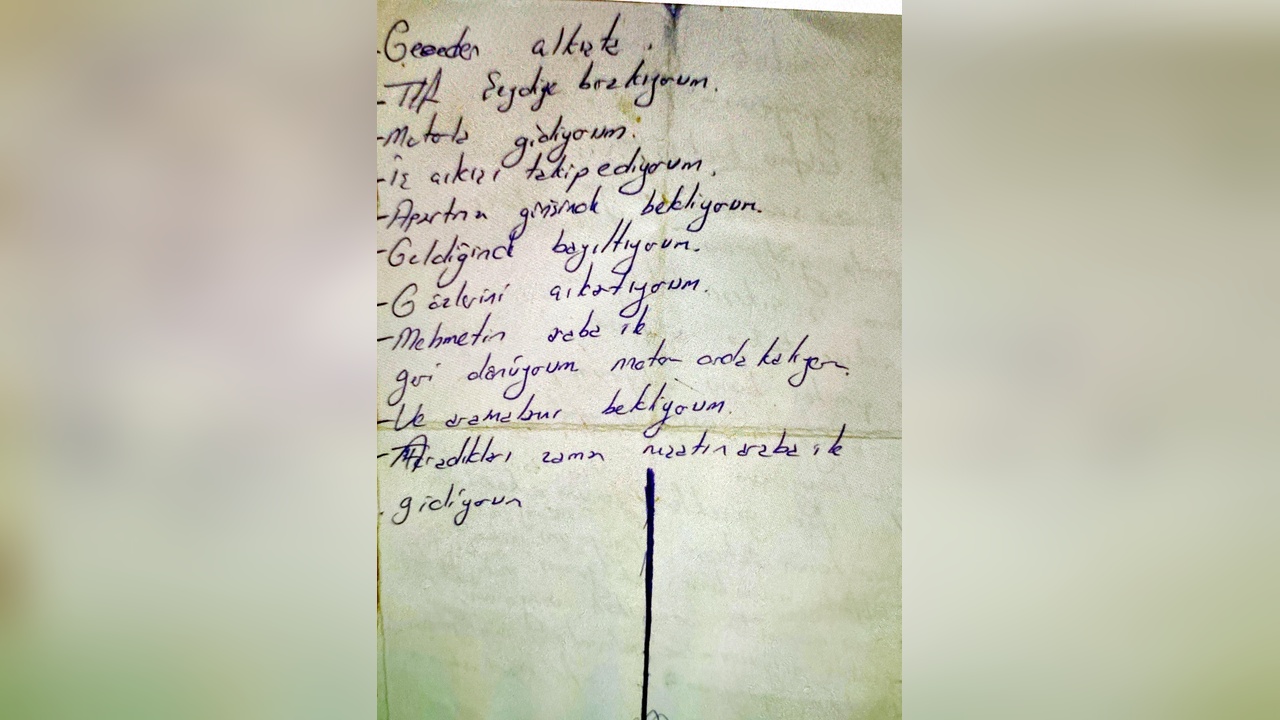 -Geceden alkışta.
-TIR Seydiye bırakıyorum.
-Motorla gidiyorum.
-İş çıkışı takip ediyorum.
-Apartma girişinde bekliyorum.
-Geldiğinde bayıltıyorum.
-Gözlerini çıkartıyorum.
-Mehmetin araba ile
geri dönüyorum motor orda kalıyor.
-Ve aramalarını bekliyorum.
-Aradıkları zaman araba ile
gidiyorum